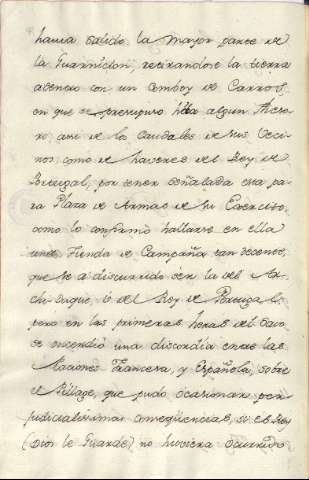 havia salido la mayor parte de
la Guarnicion, retirandose la tierra
adentro con un comboy de Carros,
en que se presupuso hiba algun Theso
ro assi de los Caudales de sus Veci
nos, como de haveres del Rey de
Portugal, por tener señalada esta pa
ra Plaza de Armas de su Exercito,
como lo confirmó hallarse en ella
una Tienda de Campaña tan decente,
que se á discurrido ser la del Ar
chi-Duque, ó del Rey de Portugal;
pero en las primeras horas del Saco,
se encendió una discordia entre las
Naciones Francesa, y Española, sobre
el Pillage, que pudo ocasionar per
judicialissimas consequencias, si el Rey
(Dios le Guarde) no huviera ocurrido